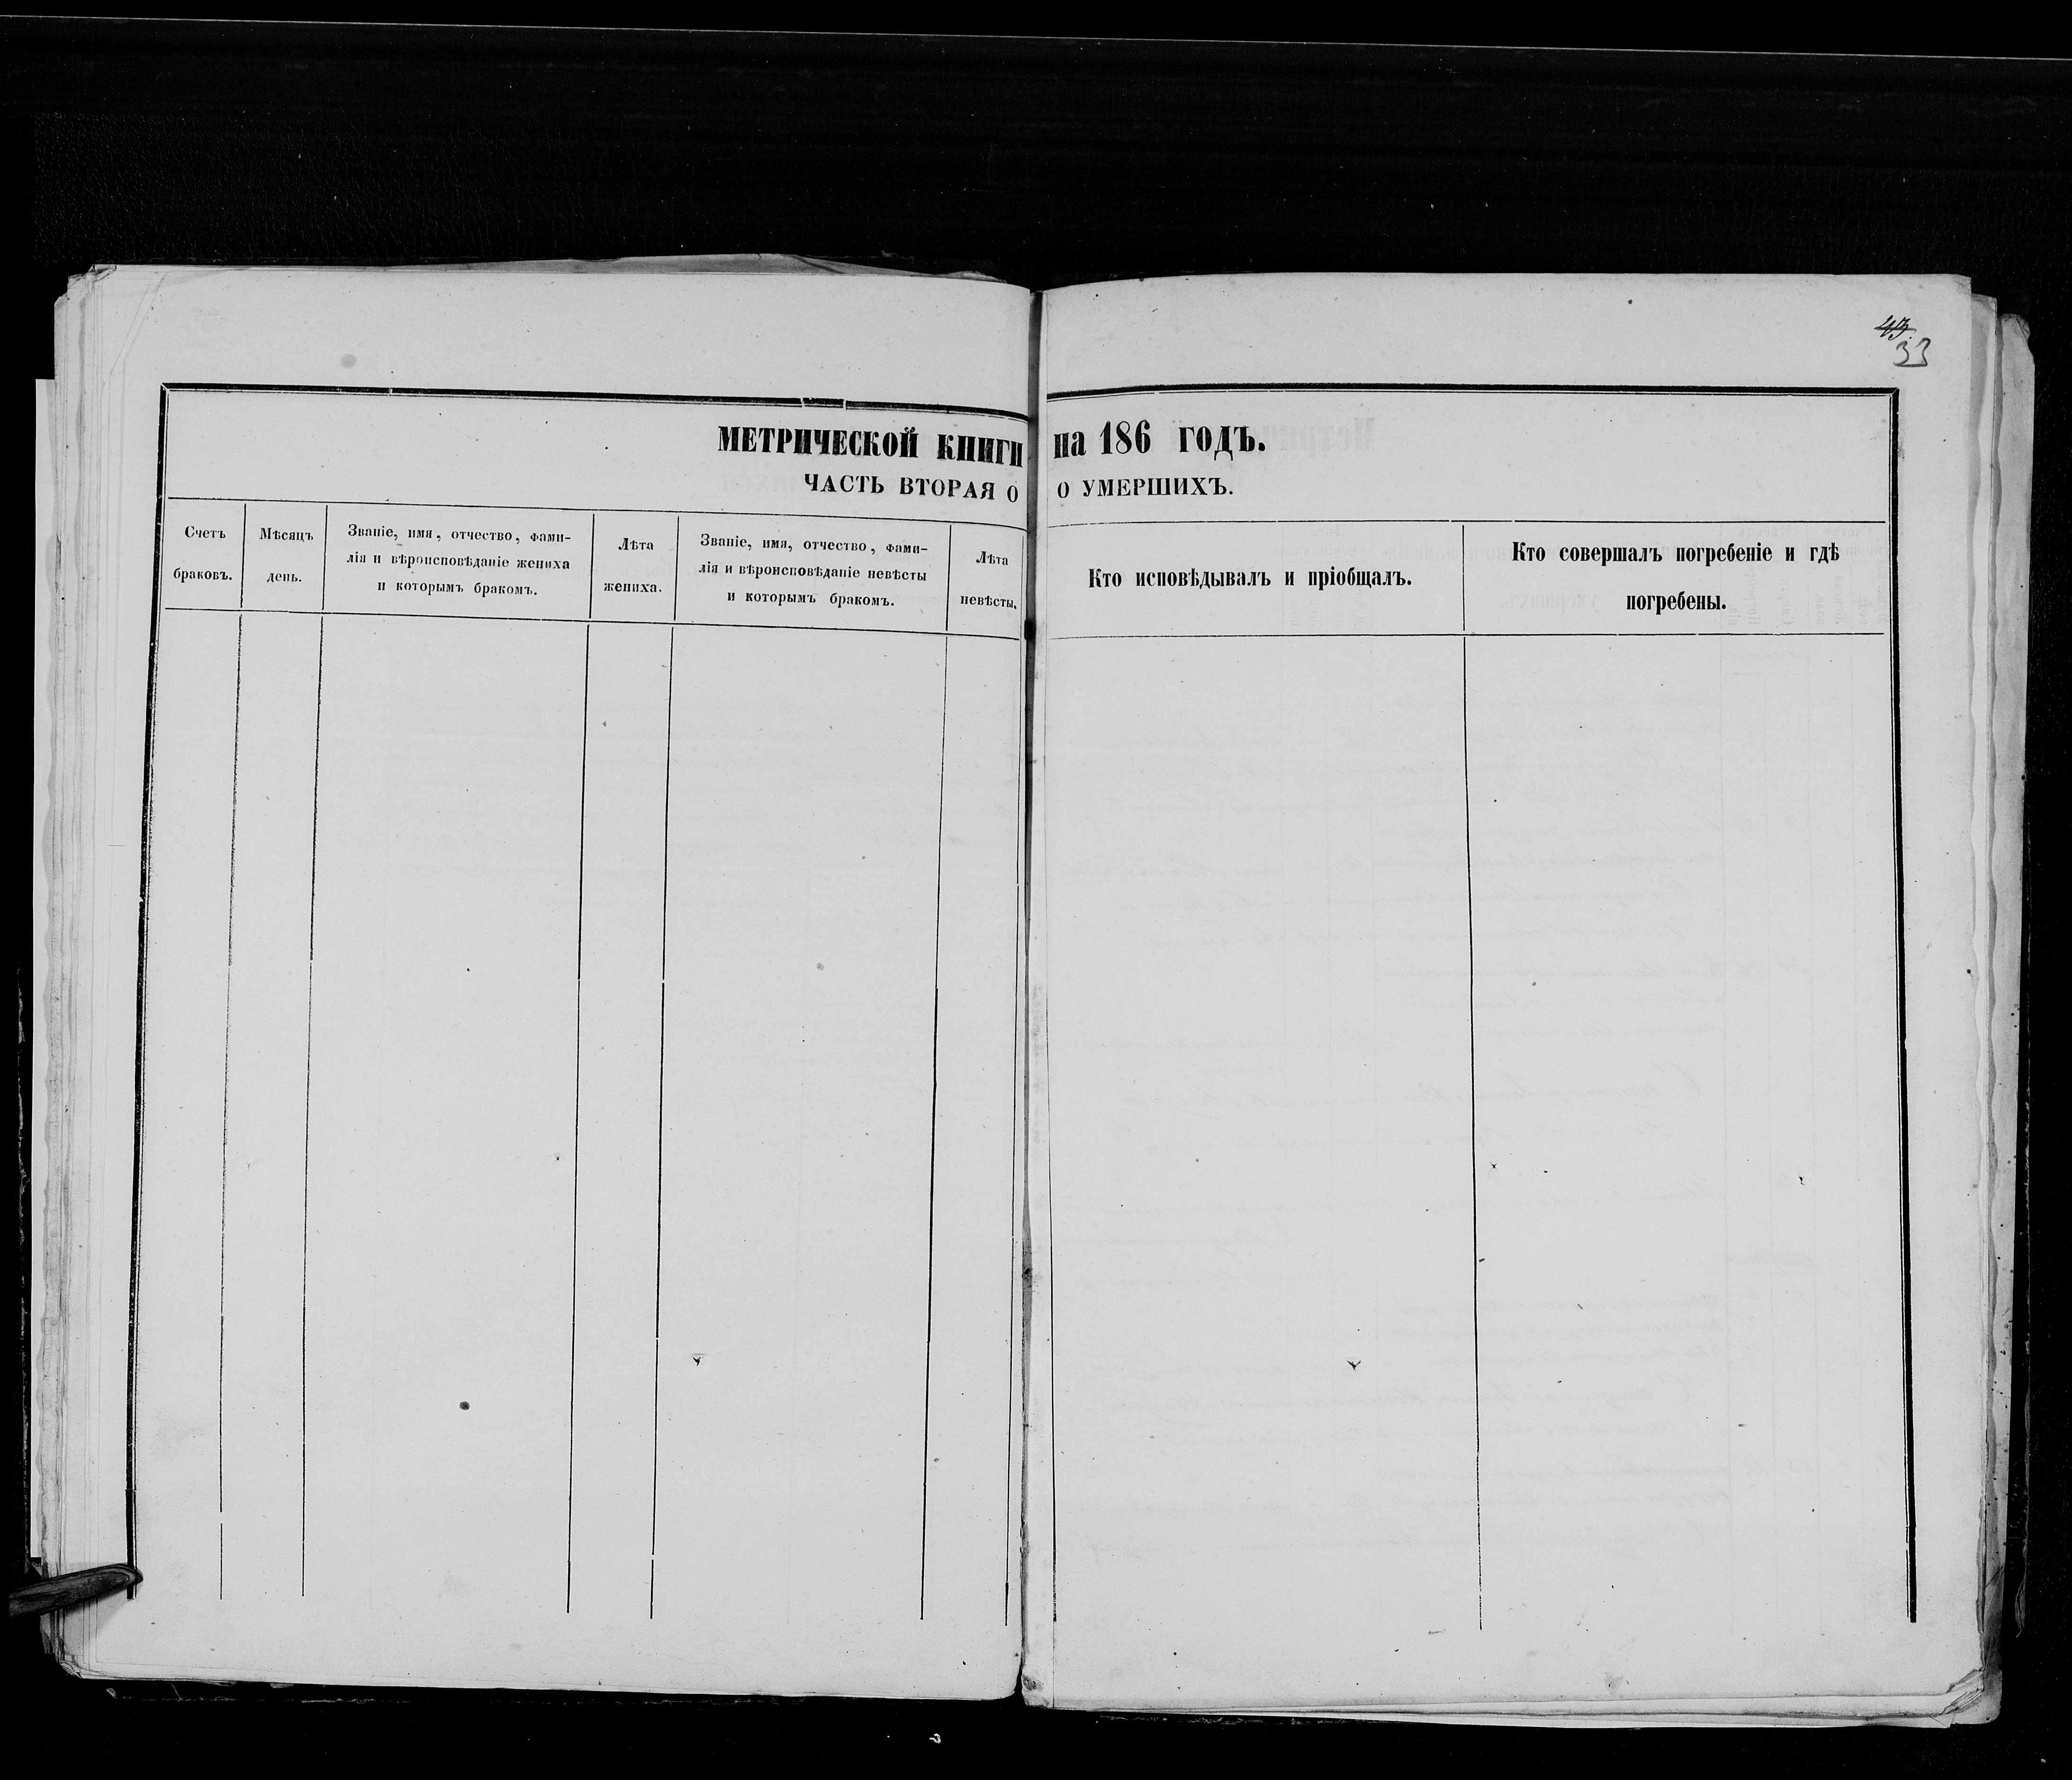 МЕТРИЧЕСКОЙ КНИГИ
ЧАСТЬ ВТОРАЯ О
Счетъ
браковъ.
Мѣсяцъ
день.
Званіе, имя, отчество, фами-
лія и вѣроисповѣданіе жениха
и которымъ бракомъ.
Лѣта
жениха.
Званіе, имя, отчество, фами-
лія и вѣроисповѣданіе невѣсты
и которымъ бракомъ.
Лѣта
невѣсты.
43.
33
на 186 годъ.
О УМЕРШИХЪ.
Кто исповѣдывалъ и пріобщалъ.
Кто совершалъ погребеніе и гдѣ
погребены.